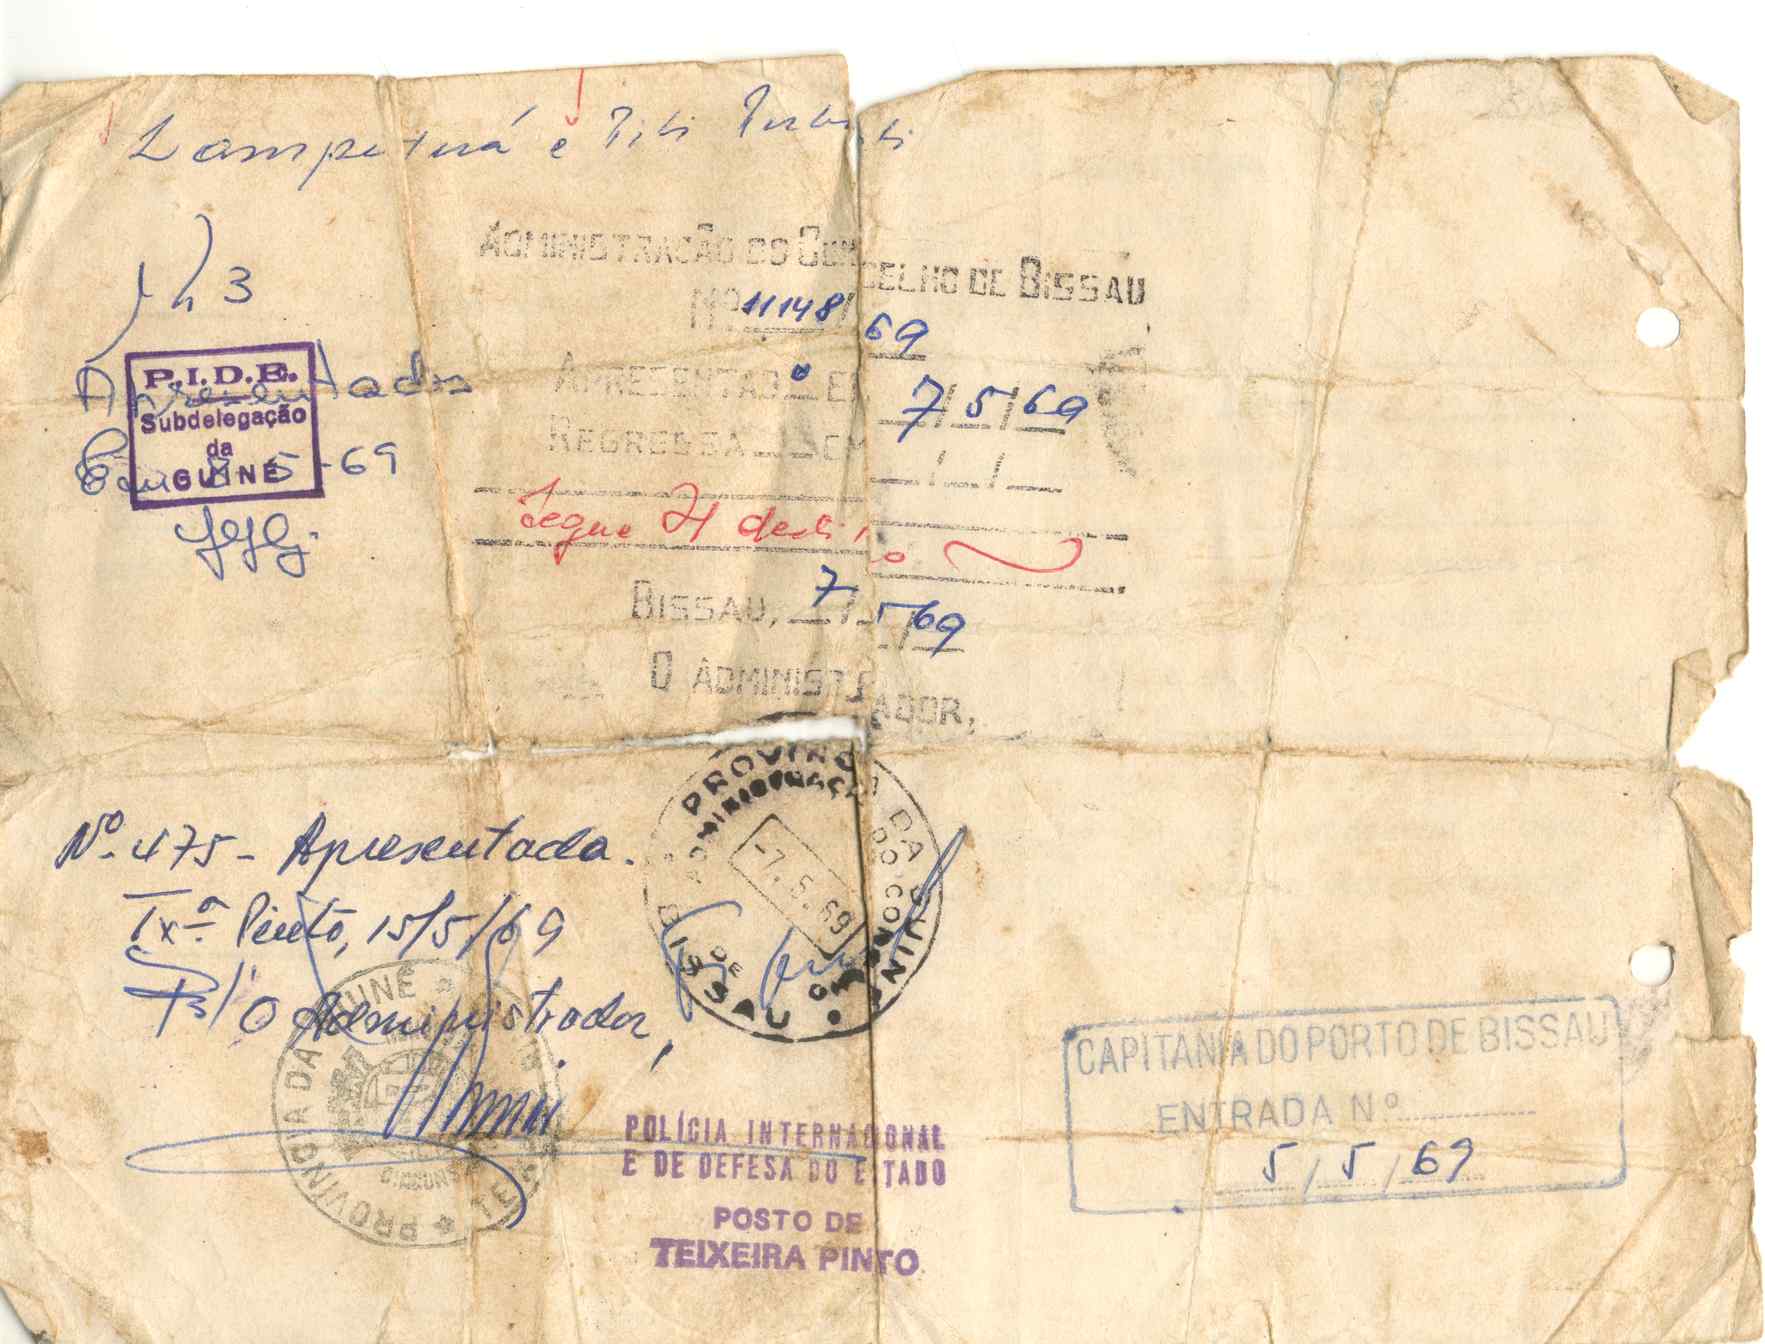 ADMINISTRAÇÃO DO CONSELHO DE BISSAU
Nº 11148/69
APRESENTADO EM 7/5/69
REGRESSA EM / /
Segue destino
BISSAU, 7/5/69
O ADMINISTRADOR,
3
Apresentado
P.I.D.E.
Subdelegação
da
GUINÉ
Em 8-5-69
PROVINCIA DA GUINÉ
ADMINISTRAÇÃO DO CONSELHO DE BISSAU
-7.5.69
Nº 475 - Apresentada.
Txª Pinto, 15/5/69
P/ O Administrador,
PROVINCIA DA GUINÉ
POLÍCIA INTERNACIONAL
E DE DEFESA DO ESTADO
POSTO DE
TEIXEIRA PINTO
CAPITANIA DO PORTO DE BISSAU
ENTRADA Nº
5/5/69